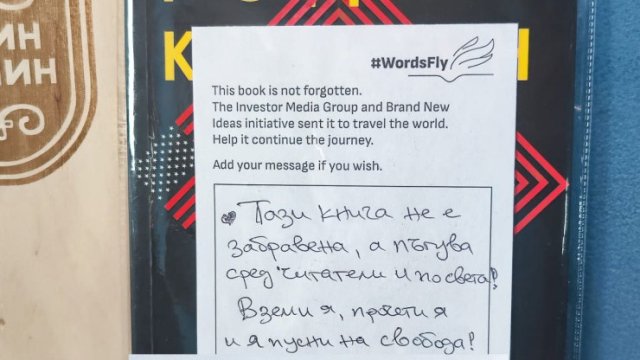 ИН
ИН
К
#WordsFly
This book is not forgotten.
The Investor Media Group and Brand New
Ideas initiative sent it to travel the world.
Help it continue the journey.
Add your message if you wish.
Тази книга не е
забравена, а пътува
сред читатели и по света!
Вземи я, прочети я
и я пусни на свобода!